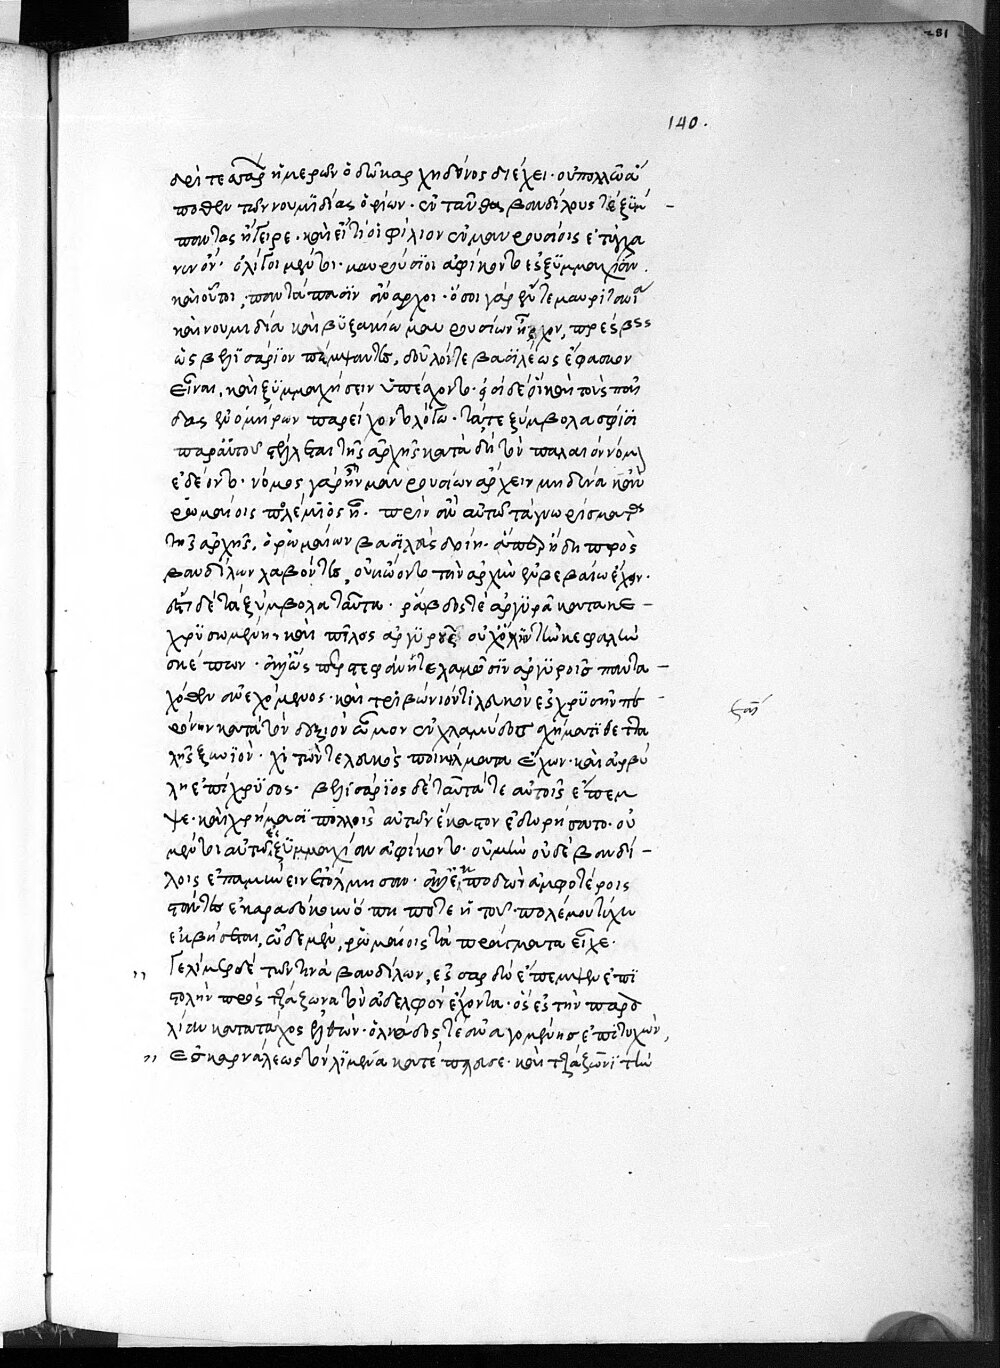 140.
δρὶ τεσσάρων ἡμερῶν ὁδῶ καρχηδόνος διέχει· οὐ πολλῶ ἄ
ποθεν τῶν νουμιδίας ὁρίων· ἐνταῦθα βανδίλους τὲ ξύμ
παντας ἤγειρε· καὶ εἴ τί οἱ φίλιον ἐν μαυρουσίοις ἐτύγχα
νεν ὄν· ὀλίγοι μέντοι μαυρούσιοι ἀφίκοντο ἐς ξυμμαχίαν·
καὶ οὗτοι, παντάπασιν ἄναρχοι· ὅσοι γὰρ ἔν τε μαυριτανία
καὶ νουμιδία καὶ βυζακίω μαυρουσίων ἦρχον, πρέσβεις
ὡς βελισάριον πέμψαντες, δοῦλοί τε βασιλέως ἔφασκον
εἶναι, καὶ ξυμμαχήσειν ὑπέσχοντο· εἰσὶ δὲ οἳ καὶ τοὺς παῖ
δας ἐν ὁμήρων παρείχοντο λόγω· τά τε ξύμβολα σφίσι
παρ' αὐτοῦ στέλλεσθαι τῆς ἀρχῆς κατὰ δὴ τὸν παλαιὸν νόμον
ἐδέοντο· νόμος γὰρ ἦν μαυρουσίων ἄρχειν μηδένα κἂν
ῥωμαίοις πολέμιος ἦ· πρὶν ἂν αὐτῶ τὰ γνωρίσματα
τῆς ἀρχῆς, ὁ ῥωμαίων βασιλεὺς δοίη· ἅπερ ἤδη πρὸς
βανδίλων λαβόντες, οὐκ ὤοντο τὴν ἀρχὴν ἐν βεβαίω ἔχειν·
ἔστι δὲ τὰ ξύμβολα ταῦτα· ῥάβδος τὲ ἀργυρᾶ κατακε
χρυσωμένη καὶ πῖλος ἀργυροῦς οὐχ ὅλην τὴν κεφαλὴν
σκέπων· ἀλλ' ὥσπερ στεφάνη τελαμῶσιν ἀργυροῖς παντα
χόθεν ἀνεχόμενος· καὶ τριβώνιόν τι λευκὸν ἐς χρυσῆν πε
ρόνην κατὰ τὸν δεξιὸν ὦμον ἐν χλαμύδος σχήματι θεττα
λῆς ξυνιὸν· χιτών τε λευκὸς ποικίλματα ἔχων· καὶ ἀρβύ
λη ἐπίχρυσος· βελισάριος δὲ ταῦτά τε αὐτοῖς ἔπεμ
ψε· καὶ χρήμασι πολλοῖς αὐτῶν ἕκαστον ἐδωρήσατο· οὐ
μέντοι αὐτῶ ἐς ξυμμαχίαν ἀφίκοντο· οὐ μὴν οὐδὲ βανδί
λοις ἐπαμύνειν ἐτόλμησαν· ἀλλ' ἐκποδὼν ἀμφοτέροις
στάντες ἐκαραδόκουν ὅπη ποτὲ ἡ τοῦ πολέμου τύχη
ἐκβήσεται, ὧδε μὲν, ῥωμαίοις τὰ πράγματα εἶχε·
Γελίμερ δὲ τῶν τινὰ βανδίλων, ἐς σαρδὼ ἔπεμψεν ἐπι
στολὴν πρὸς τζάζωνα τὸν ἀδελφὸν ἔχοντα· ὃς ἐς τὴν παρα
λίαν κατατάχος ἐλθὼν· ὁλκάδος τὲ ἀναγομένης ἐπιτυχὼν,
ἐς καρανάλεως τὸν λιμένα κατέπλευσε· καὶ τζάζωνι τὴν